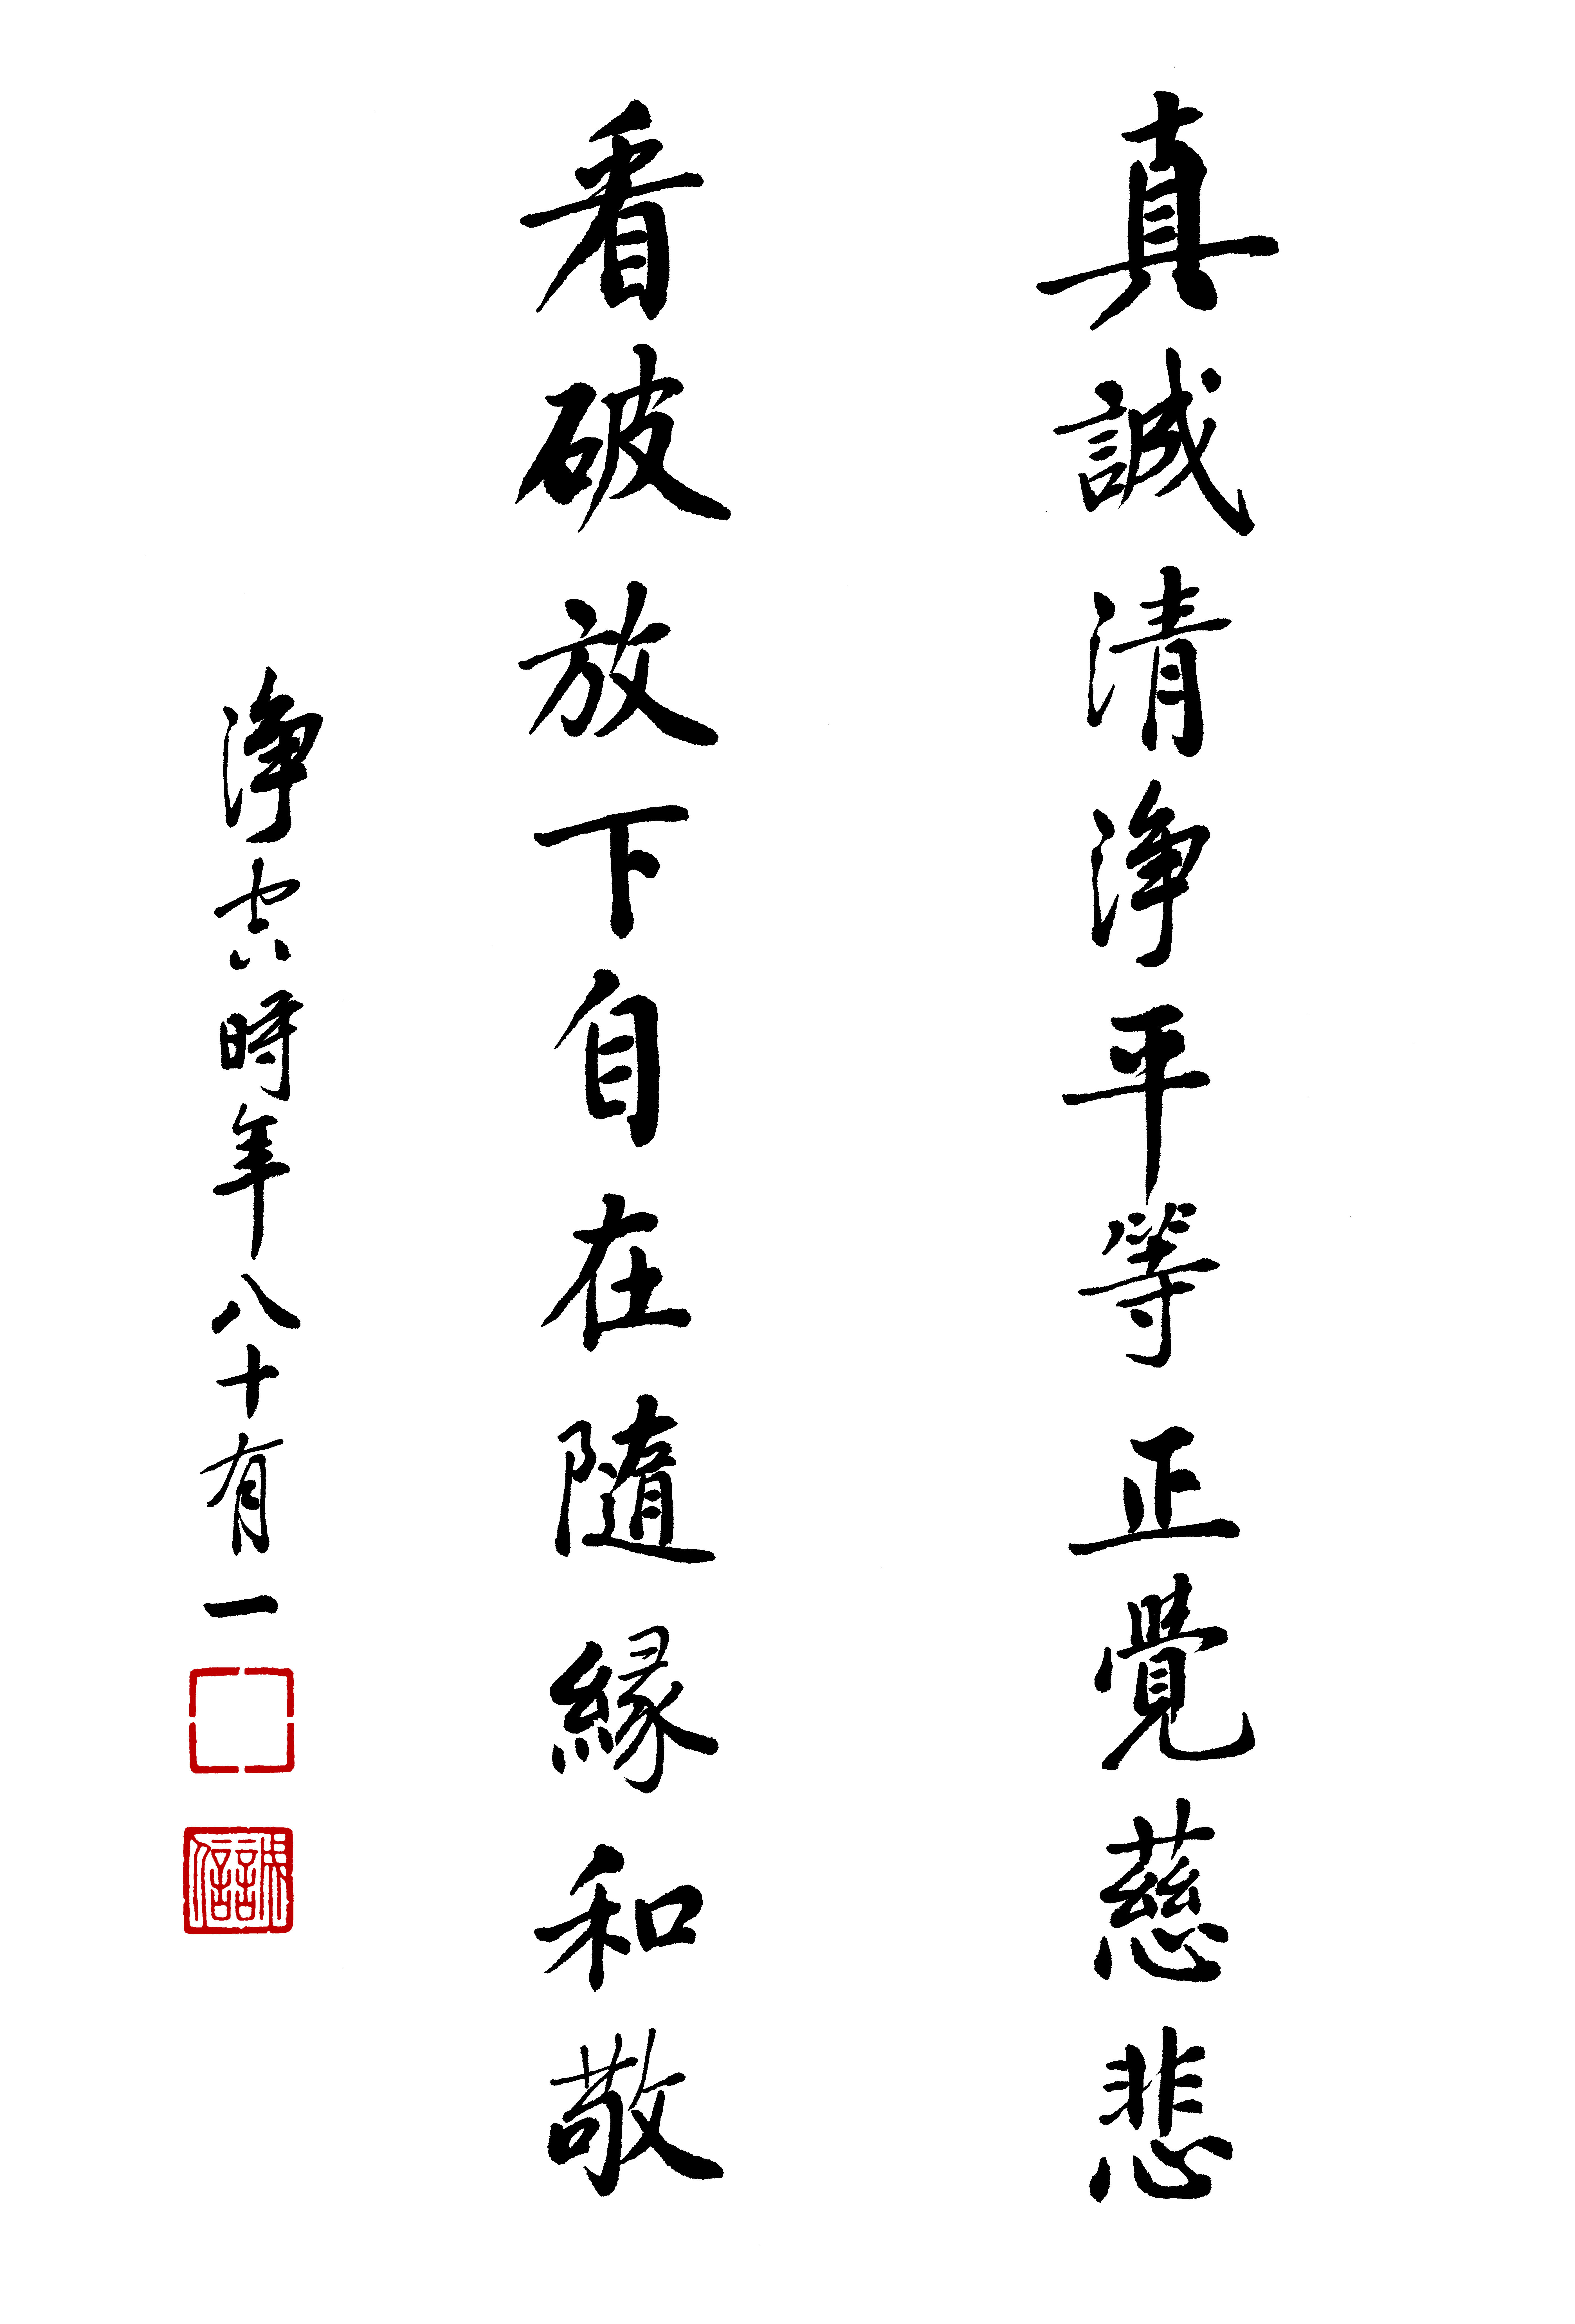 真誠清淨平等正覺慈悲
看破放下自在隨緣和敬
淨空時年八十有一
誠信